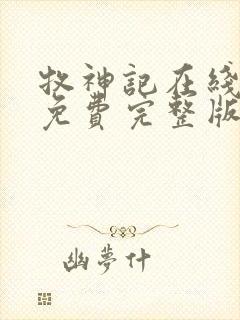 牧神记在线
免費完整版
幽夢什